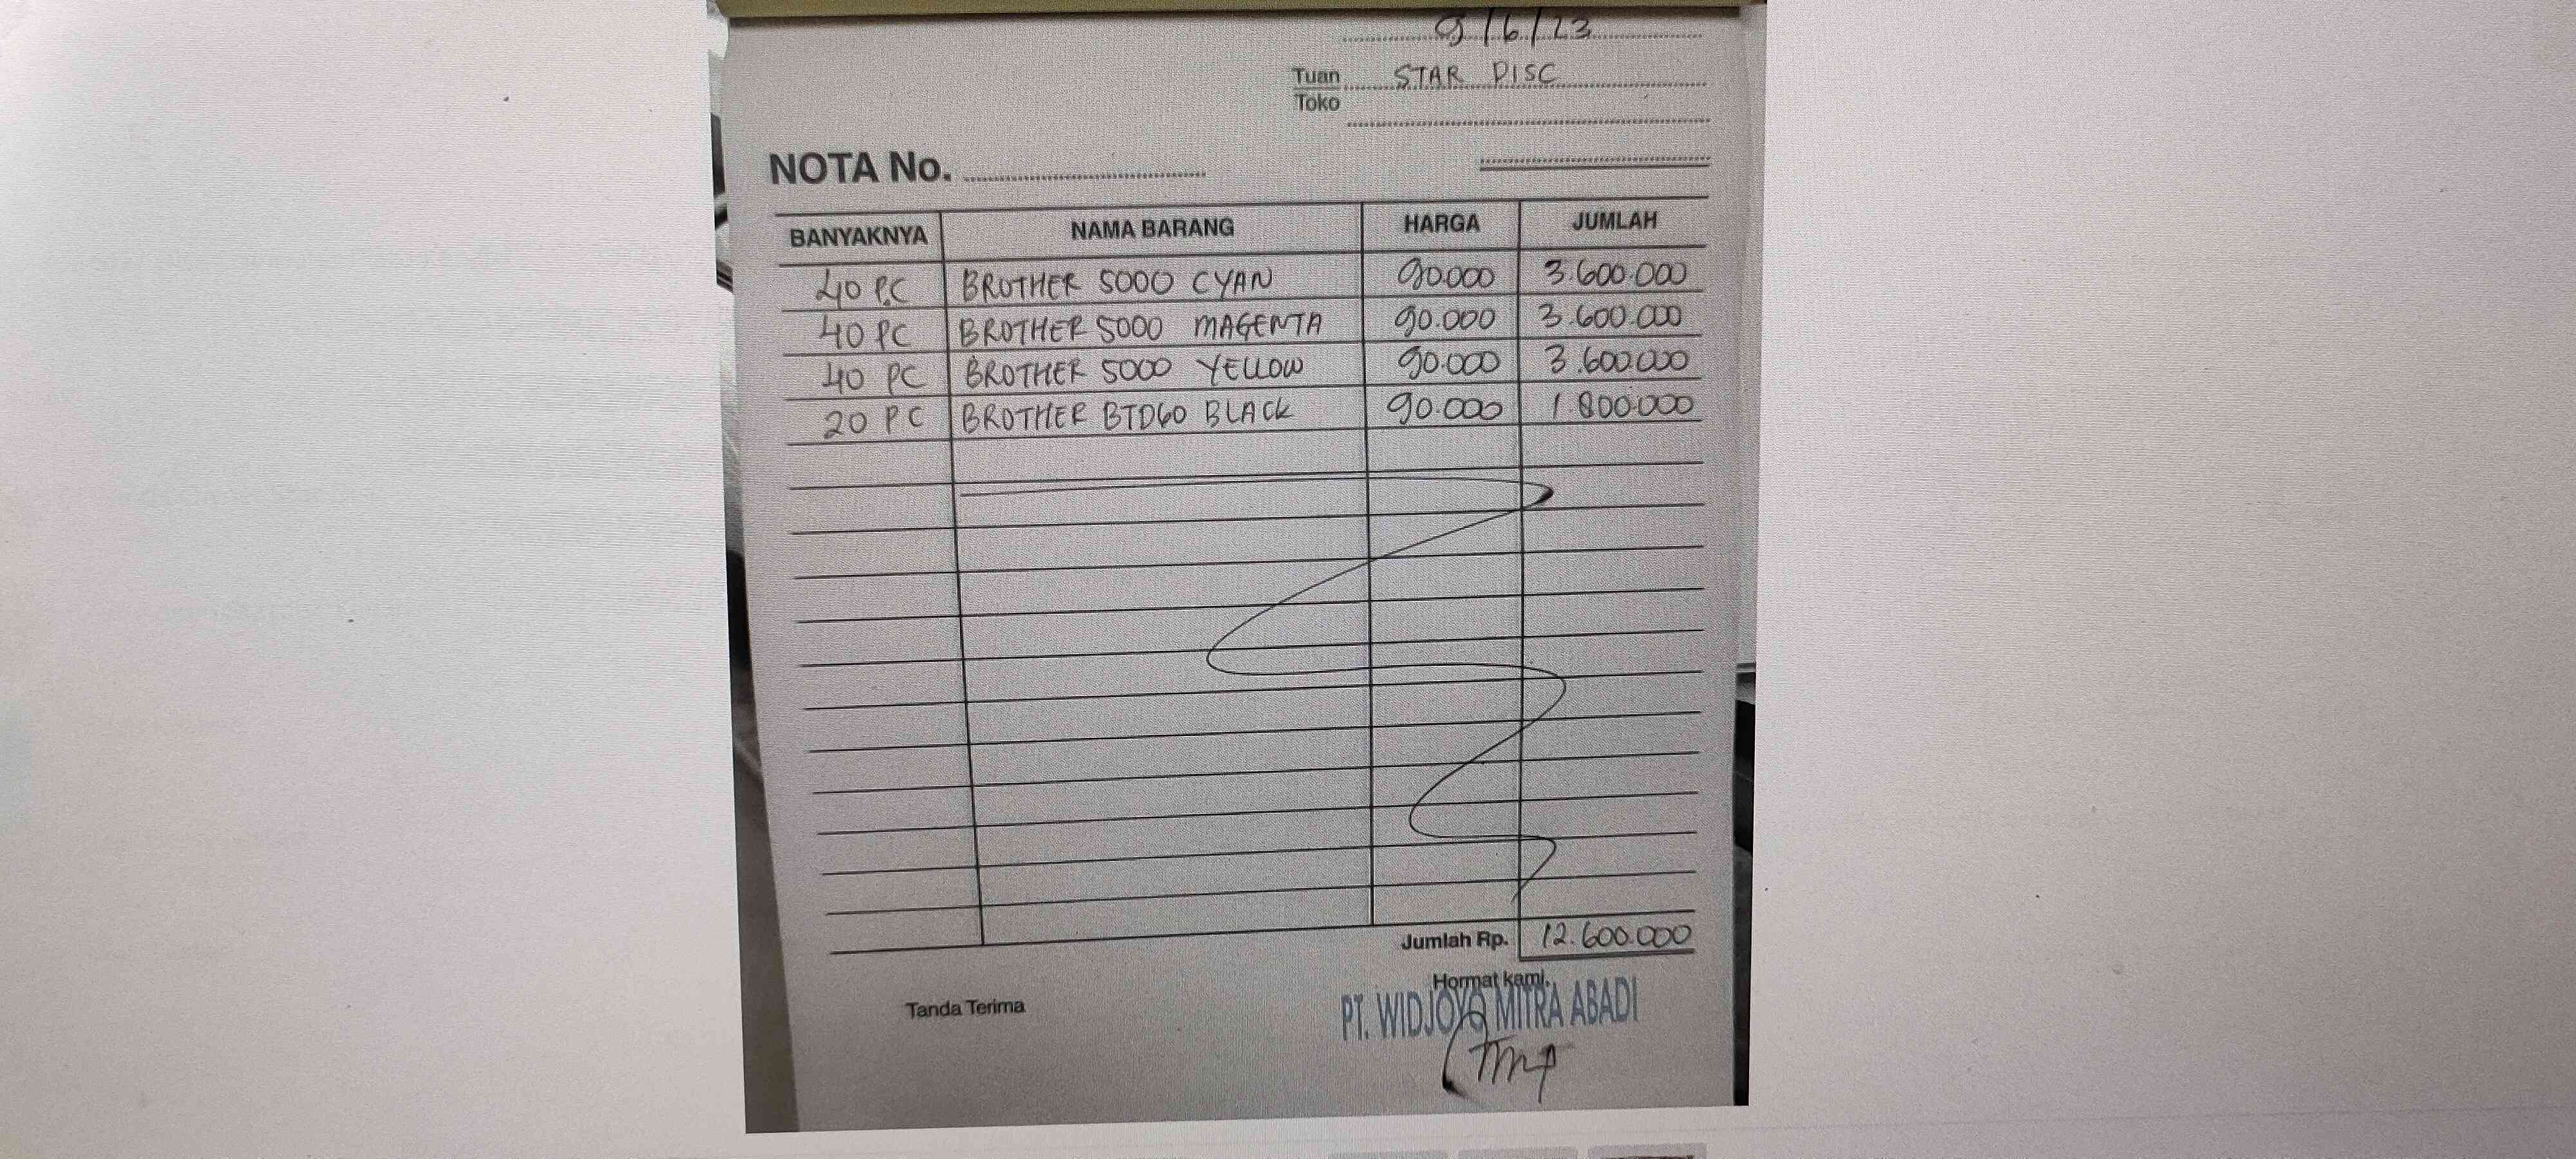 9/6/23
Tuan STAR DISC
Toko
NOTA No.
BANYAKNYA NAMA BARANG HARGA JUMLAH
40 PC BROTHER 5000 CYAN 90.000 3.600.000
40 PC BROTHER 5000 MAGENTA 90.000 3.600.000
40 PC BROTHER 5000 YELLOW 90.000 3.600.000
20 PC BROTHER BTD60 BLACK 90.000 1.800.000
Jumlah Rp. 12.600.000
Tanda Terima Hormat kami,
PT. WIDJOYO MITRA ABADI